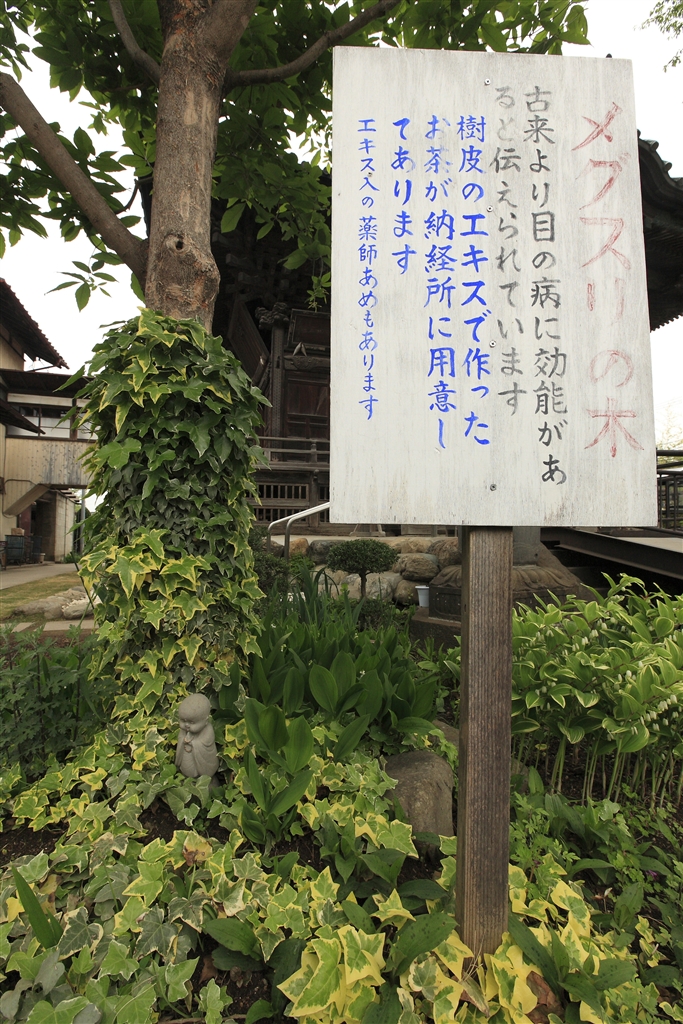 メグスリの木
古来より目の病に効能があ
ると伝えられています
樹皮のエキスで作った
お茶が納経所に用意し
てあります
エキス入の薬師あめもあります